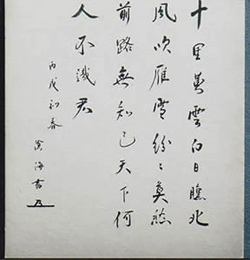 十里黄雲白日曛北
風吹雁雪紛〻莫愁
前路無知己天下何
人不識君
丙戌初春
滄海书